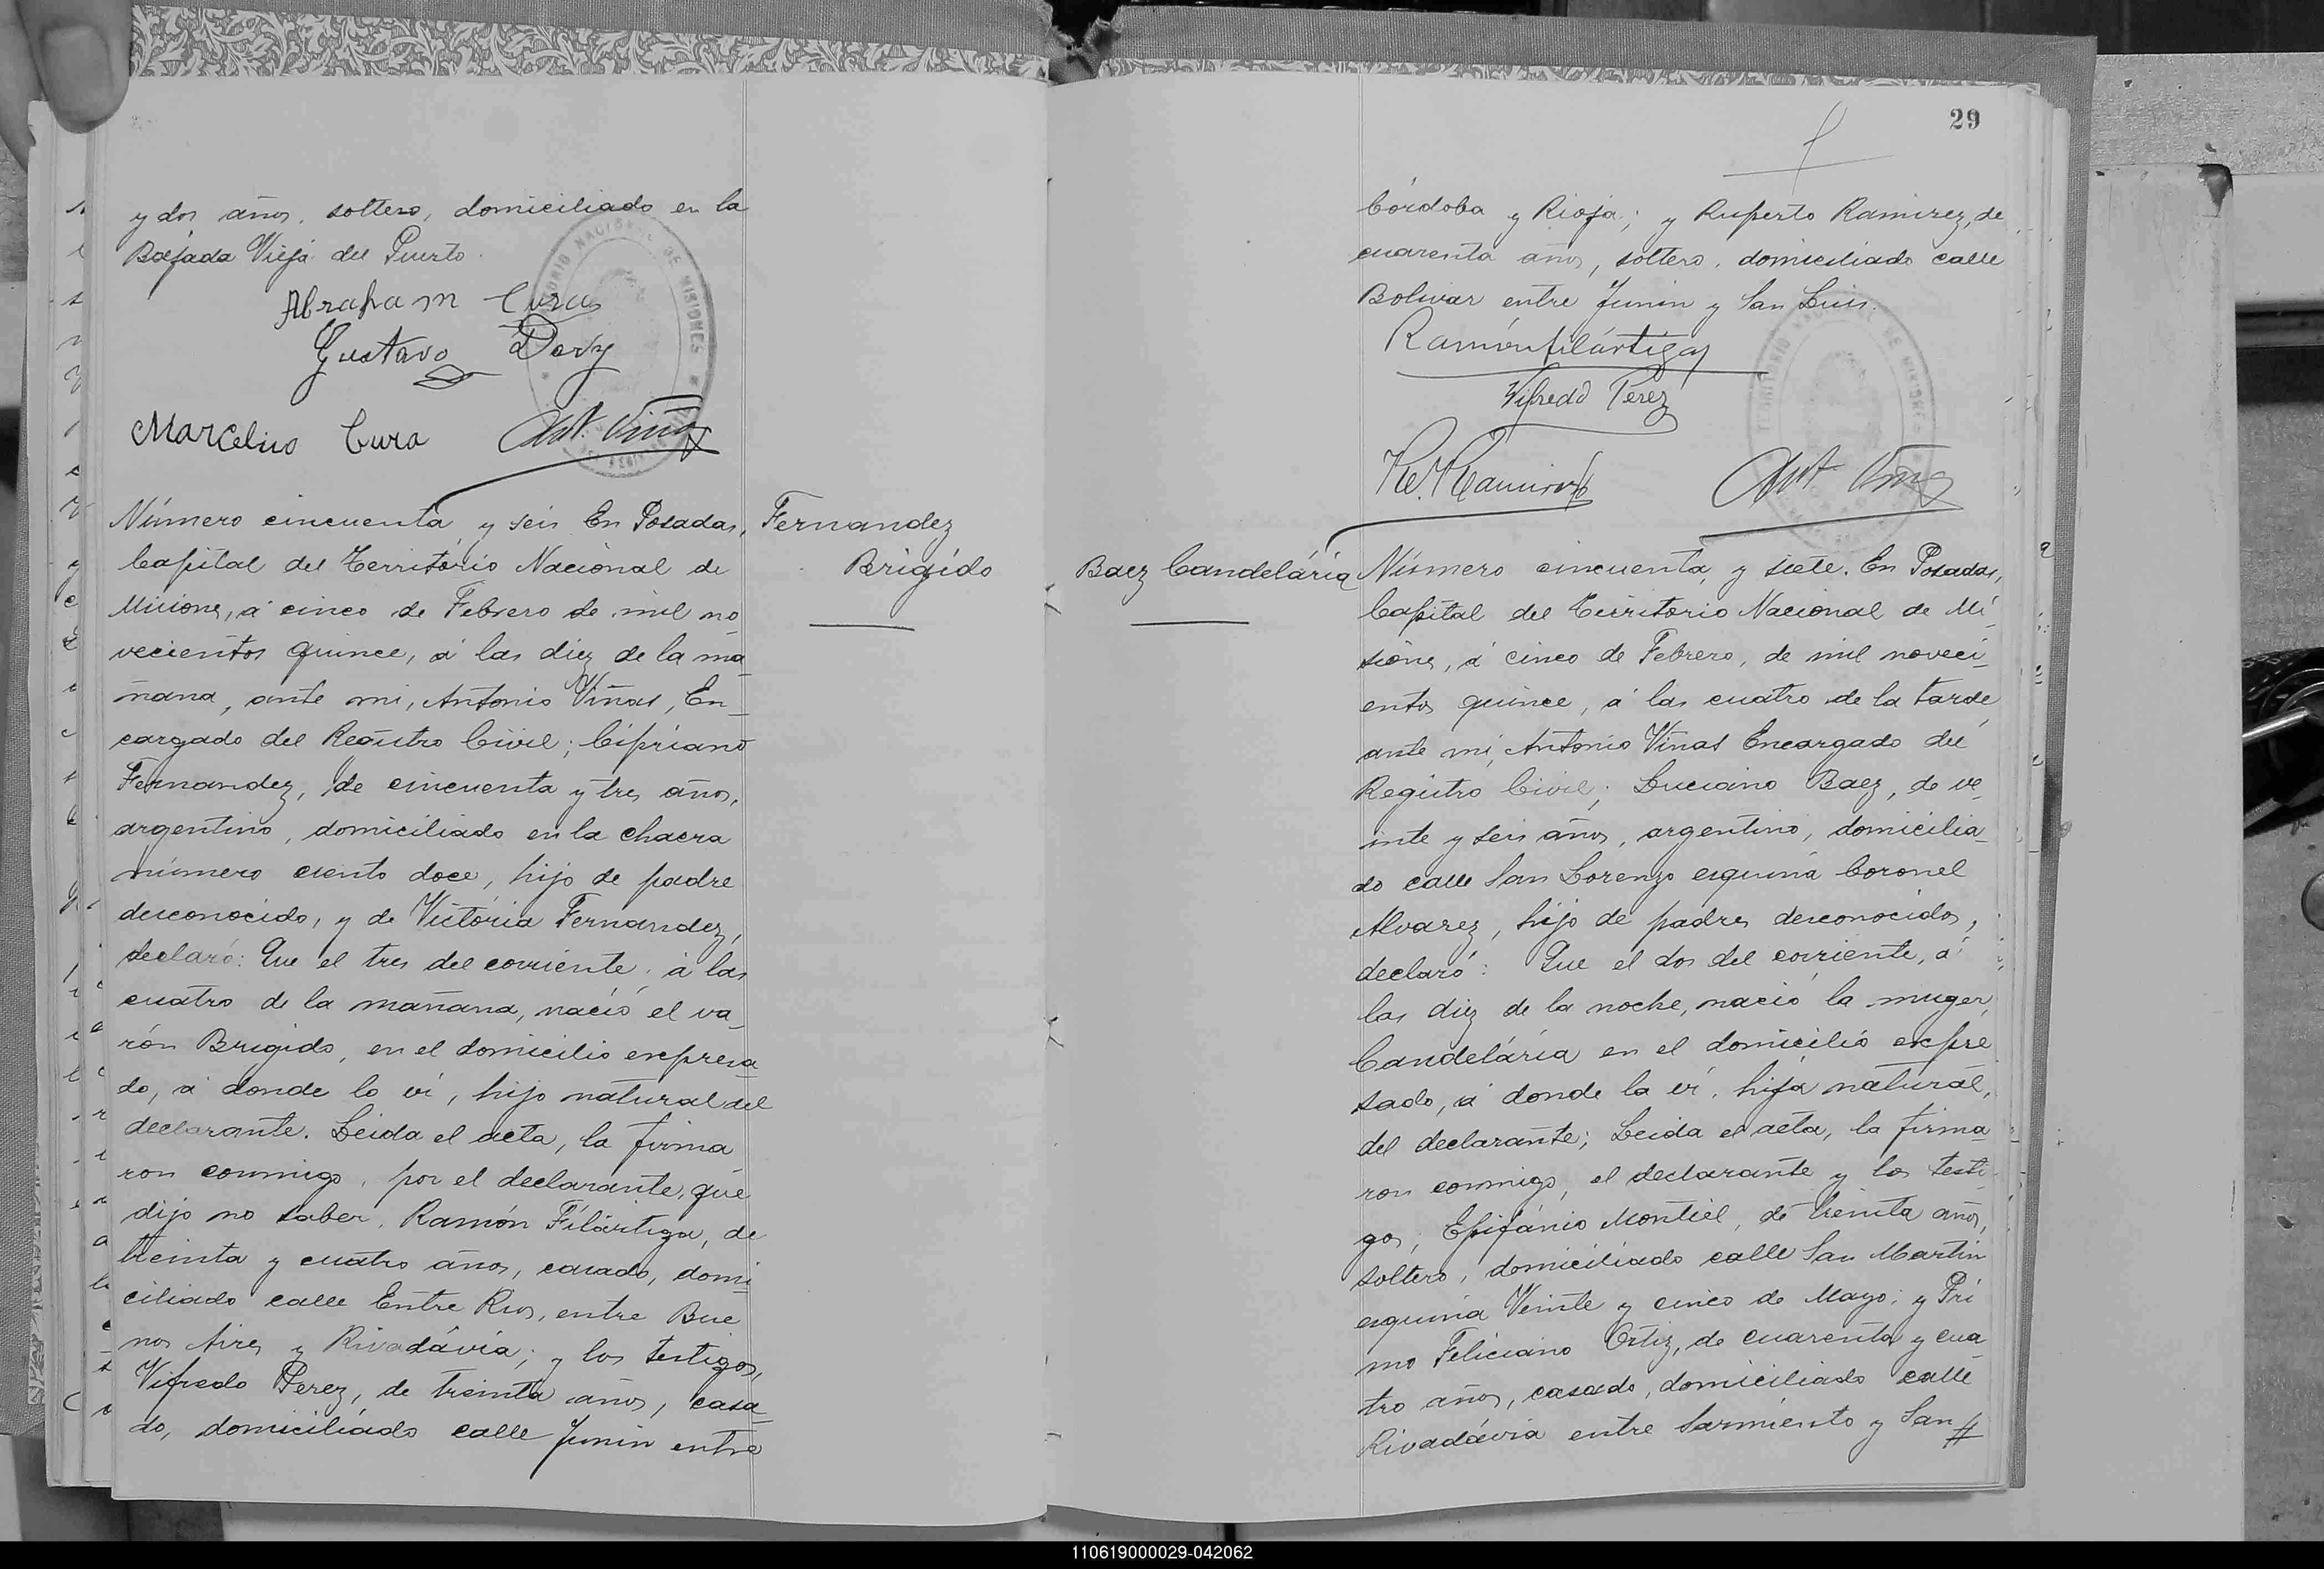 y dos años, soltero, domiciliado en la
Bajada Vieja del Puerto.
Abraham Cura
Gustavo Dory
Marcelino Cura Ant. Viñas
Número cincuenta y seis En Posadas,
Capital del Territorio Nacional de
Misiones, á cinco de Febrero de mil no
vecientos quince, á las diez de la ma
ñana, ante mi, Antonio Viñas, En_
cargado del Registro Civil; Cipriano
Fernandez, de cincuenta y tres años,
argentino, domiciliado en la chacra
número ciento doce, hijo de padre
desconocido, y de Victória Fernandez,
declaró: Que el tres del corriente, á las
cuatro de la mañana, nació el va_
rón Brigido, en el domicilio expresa
do, á donde lo ví, hijo natural del
declarante. Leida el acta, la firma
ron conmigo, por el declarante, que
dijo no saber, Ramón Filártiga, de
treinta y cuatro años, casado, domi_
ciliado calle Entre Rios, entre Bue
nos Aires y Rivadávia; y los testigos,
Vifredo Perez, de treinta años, casa_
do, domiciliado calle Junin entre
Fernandez
Brigido
29
Córdoba y Rioja; y Ruperto Ramirez, de
cuarenta años, soltero, domiciliado calle
Bolivar entre Junin y San Luis.
Ramón Filártiga
Vifredo Perez
R. Ramirez Ant Viñas
Baez Candelária
Número cincuenta y siete. En Posadas,
Capital del Territorio Nacional de Mi_
siones, á cinco de Febrero, de mil noveci_
entos quince, á las cuatro de la tarde
ante mi, Antonio Viñas Encargado del
Registro Civil; Luciano Baez, de ve_
inte y seis años, argentino, domicilia_
do calle San Lorenzo esquina Coronel
Alvarez, hijo de padres desconocidos,
declaró: Que el dos del corriente, á
las diez de la noche, nació la muger,
Candelária en el domicilio expre
sado, á donde la ví, hija natural,
del declarante; Leida el acta, la firma_
ron conmigo, el declarante y los testi_
gos, Epifánio Montiel, de treinta años,
soltero, domiciliado calle San Martin
esquina Veinte y cinco de Mayo; y Pri
mo Feliciano Ortiz, de cuarenta y cua_
tro años, casado, domiciliado calle
Rivadávia entre Sarmiento y San #
110619000029-042062